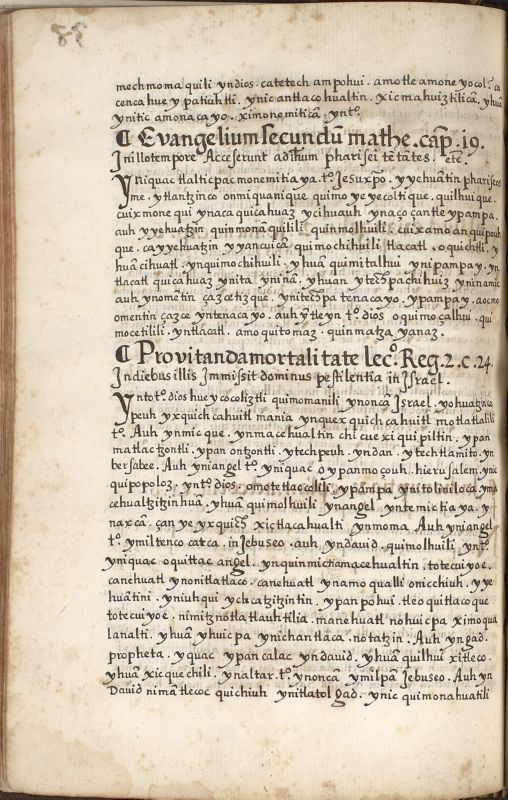 88
mechmoma quili yndios. catetech ampohui. amotle amone yocol. ca
cenca hue y patiuhtli. ynic antlaco hualtin. xic mahuiztilicā. yhuā
ynitic amonacayo. ximonemiticā. yntº.
¶ Evangelium secundū mathe. cap̄. 19.
In illo tempore Acceserunt adihum pharisei tētates. etc.
Yniquac tlalticpac monemitiaya. tº. Jesu xp̄o. yychuantin phariseos
me. ytlantzinco onmiquanique. quimo yeyecoltique. quilhuique.
cuix mone qui ynaca quicahuaz ycihuauh ynaço çan tle ypampa.
auh yyehuatzin quinmonaquilili. quinmolhuili. cuix amo an quipouh
que. ca yyehuatzin yyancuicā. quimochihuili tlacatl. oquichtli. y
huā cihuatl. ynquimochihuili. yhuā quimitalhui ynipampay. yn
tlacatl quicahuaz ynita yninā. yhuan ytech pachihuiz yninamic
auh ynomētin çaz cetizque. ynitech pa tenacayo. ypampay. aocmo
omentin çaz ce yntenacayo. auh ytleyn tº. dios oquimoçalhui. qui
mocetilili. yntlacatl. amo quitomaz. quinmatza yanaz.
¶ Pro vitanda mortalitate lecº. Reg. 2. c. 24.
In diebus illis Immissit dominus pestilentia in Israel.
Yntº. dios huey cocoliztli quimomanili ynoncā Israel. yohuatzinco
peuh yxquich cahuitl mania ynquexquich cahuitl motlatlalili
tº. Auh ynmicque. ynmacehualtin chicuexiquipiltin. ypan
matlactzontli. ypan ontzontli. ytechpeuh. yndan. ytechtlamito. yn
bersabee. Auh yniangel tº. yniquac oypanmoçouh. hierusalem. ynic
quipopoloz. yntº. dios. omotetlaocolili. ypampa ynitolinìloca. yma
cehualtzitzinhuā. yhuā quimolhuili ynangel. yntemictiaya. y
naxcā. çan ye yxquich xictlacahualti ynmoma Auh yniangel
tº. ymiltenco catca. in Jebuseo. auh yndavid. quimolhuili. yntº.
yniquac oquittac angel. ynquinmictia macehualtin. totecuiyoe.
canehuatl ynonitlatlaco. canehuatl ynamo qualli onicchiuh. yye
huātini. yniuhqui ychcatzitzintin. ypan pohui. tleo quitlacoque
totecuiyoe. nimitznotlatlauhtilia. manehuatl nohuicpa ximoqua
lanalti. yhuā yhuicpa ynichantlaca. notatzin. Auh yngad.
propheta. yquac ypan calac yndavid. yhuā quilhui xitleco.
yhuā xicquechili. ynaltar. tº. ynoncā ymilpā Jebuseo. Auh yn
David nimā tlecoc quichiuh ynitlatol gad. ynic quimonahuatili